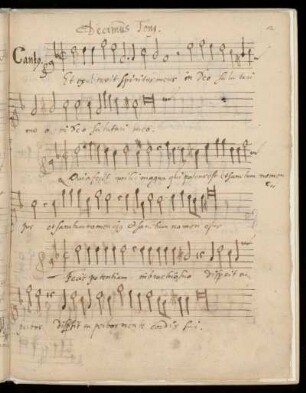 Decimus Toni.
Canto
Et exultavit spiritus meus in Deo salutari
meo in Deo salutari meo.
Quia fecit mihi magna qui potens est et sanctum nomen
et sanctum nomen eius et sanctum nomen eius
Fecit potentiam in brachio suo dispersit
dispersit superbos mente cordis sui.